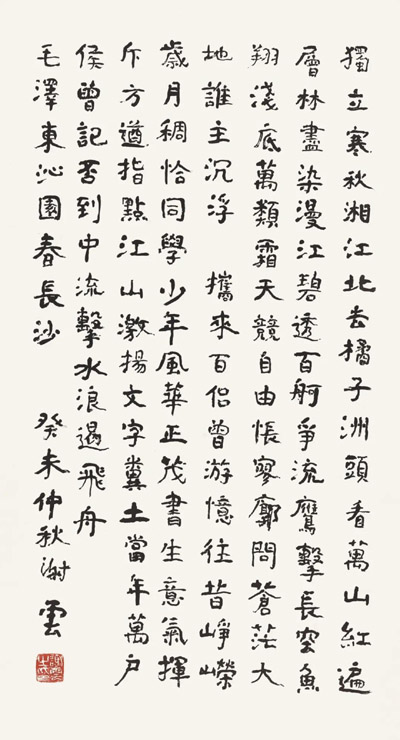 獨立寒秋湘江北去橘子洲頭看萬山紅遍
層林盡染漫江碧透百舸爭流鷹擊長空魚
翔淺底萬類霜天競自由悵寥廓問蒼茫大
地誰主沉浮 攜來百侶曾游憶往昔崢嶸
歲月稠恰同學少年風華正茂書生意氣揮
斥方遒指點江山激揚文字糞土當年萬戶
侯曾記否到中流擊水浪遏飛舟
毛澤東沁園春長沙 癸未仲秋謝雲